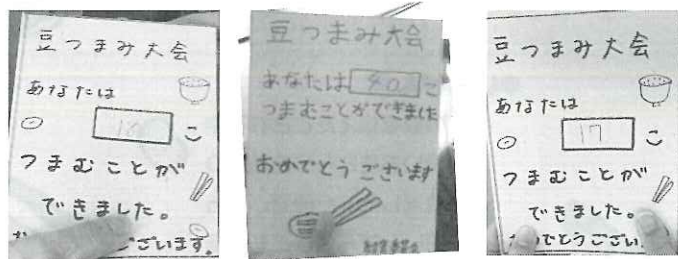 豆つまみ大会
あなたは
18 こ
つまむことが
できました。
ございます。
豆つまみ大会
あなたは 40 こ
つまむことができました
おめでとうございます
豆つまみ大会
あなたは
17 こ
つまむことが
できました。
でとうござい